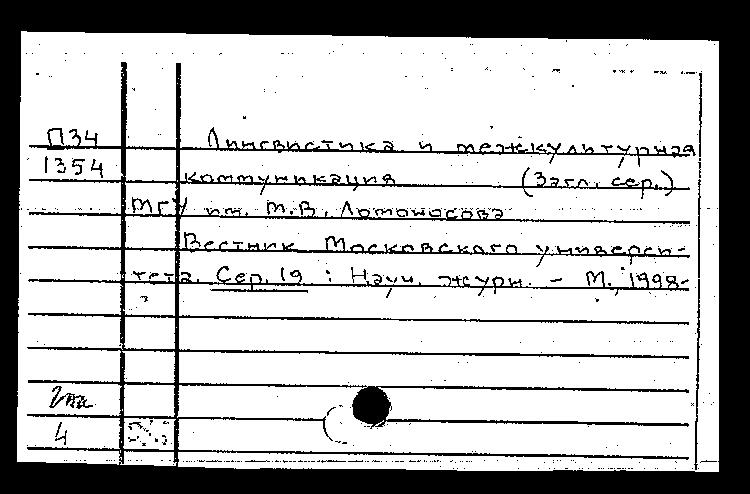 П34
1354
Лингвистика и межкультурная
коммуникация (Загл. сер.)
МГУ им. М.В. Ломоносова
Вестник Московского универси-
тета. Сер. 19 : Науч. журн. - М., 1998-
4